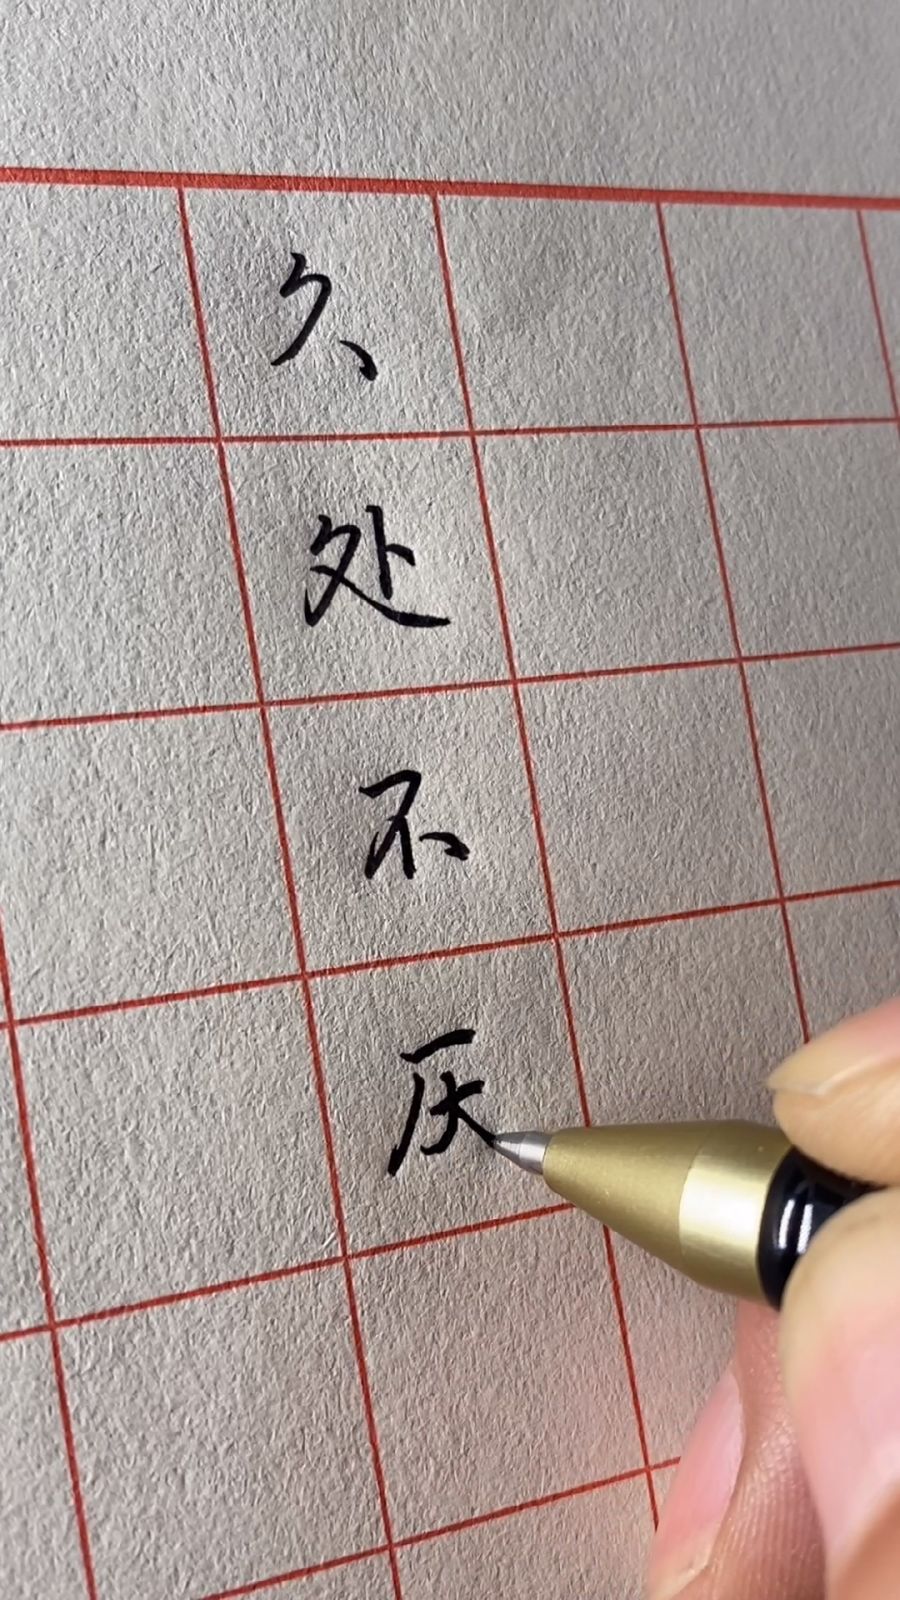 久处不厌